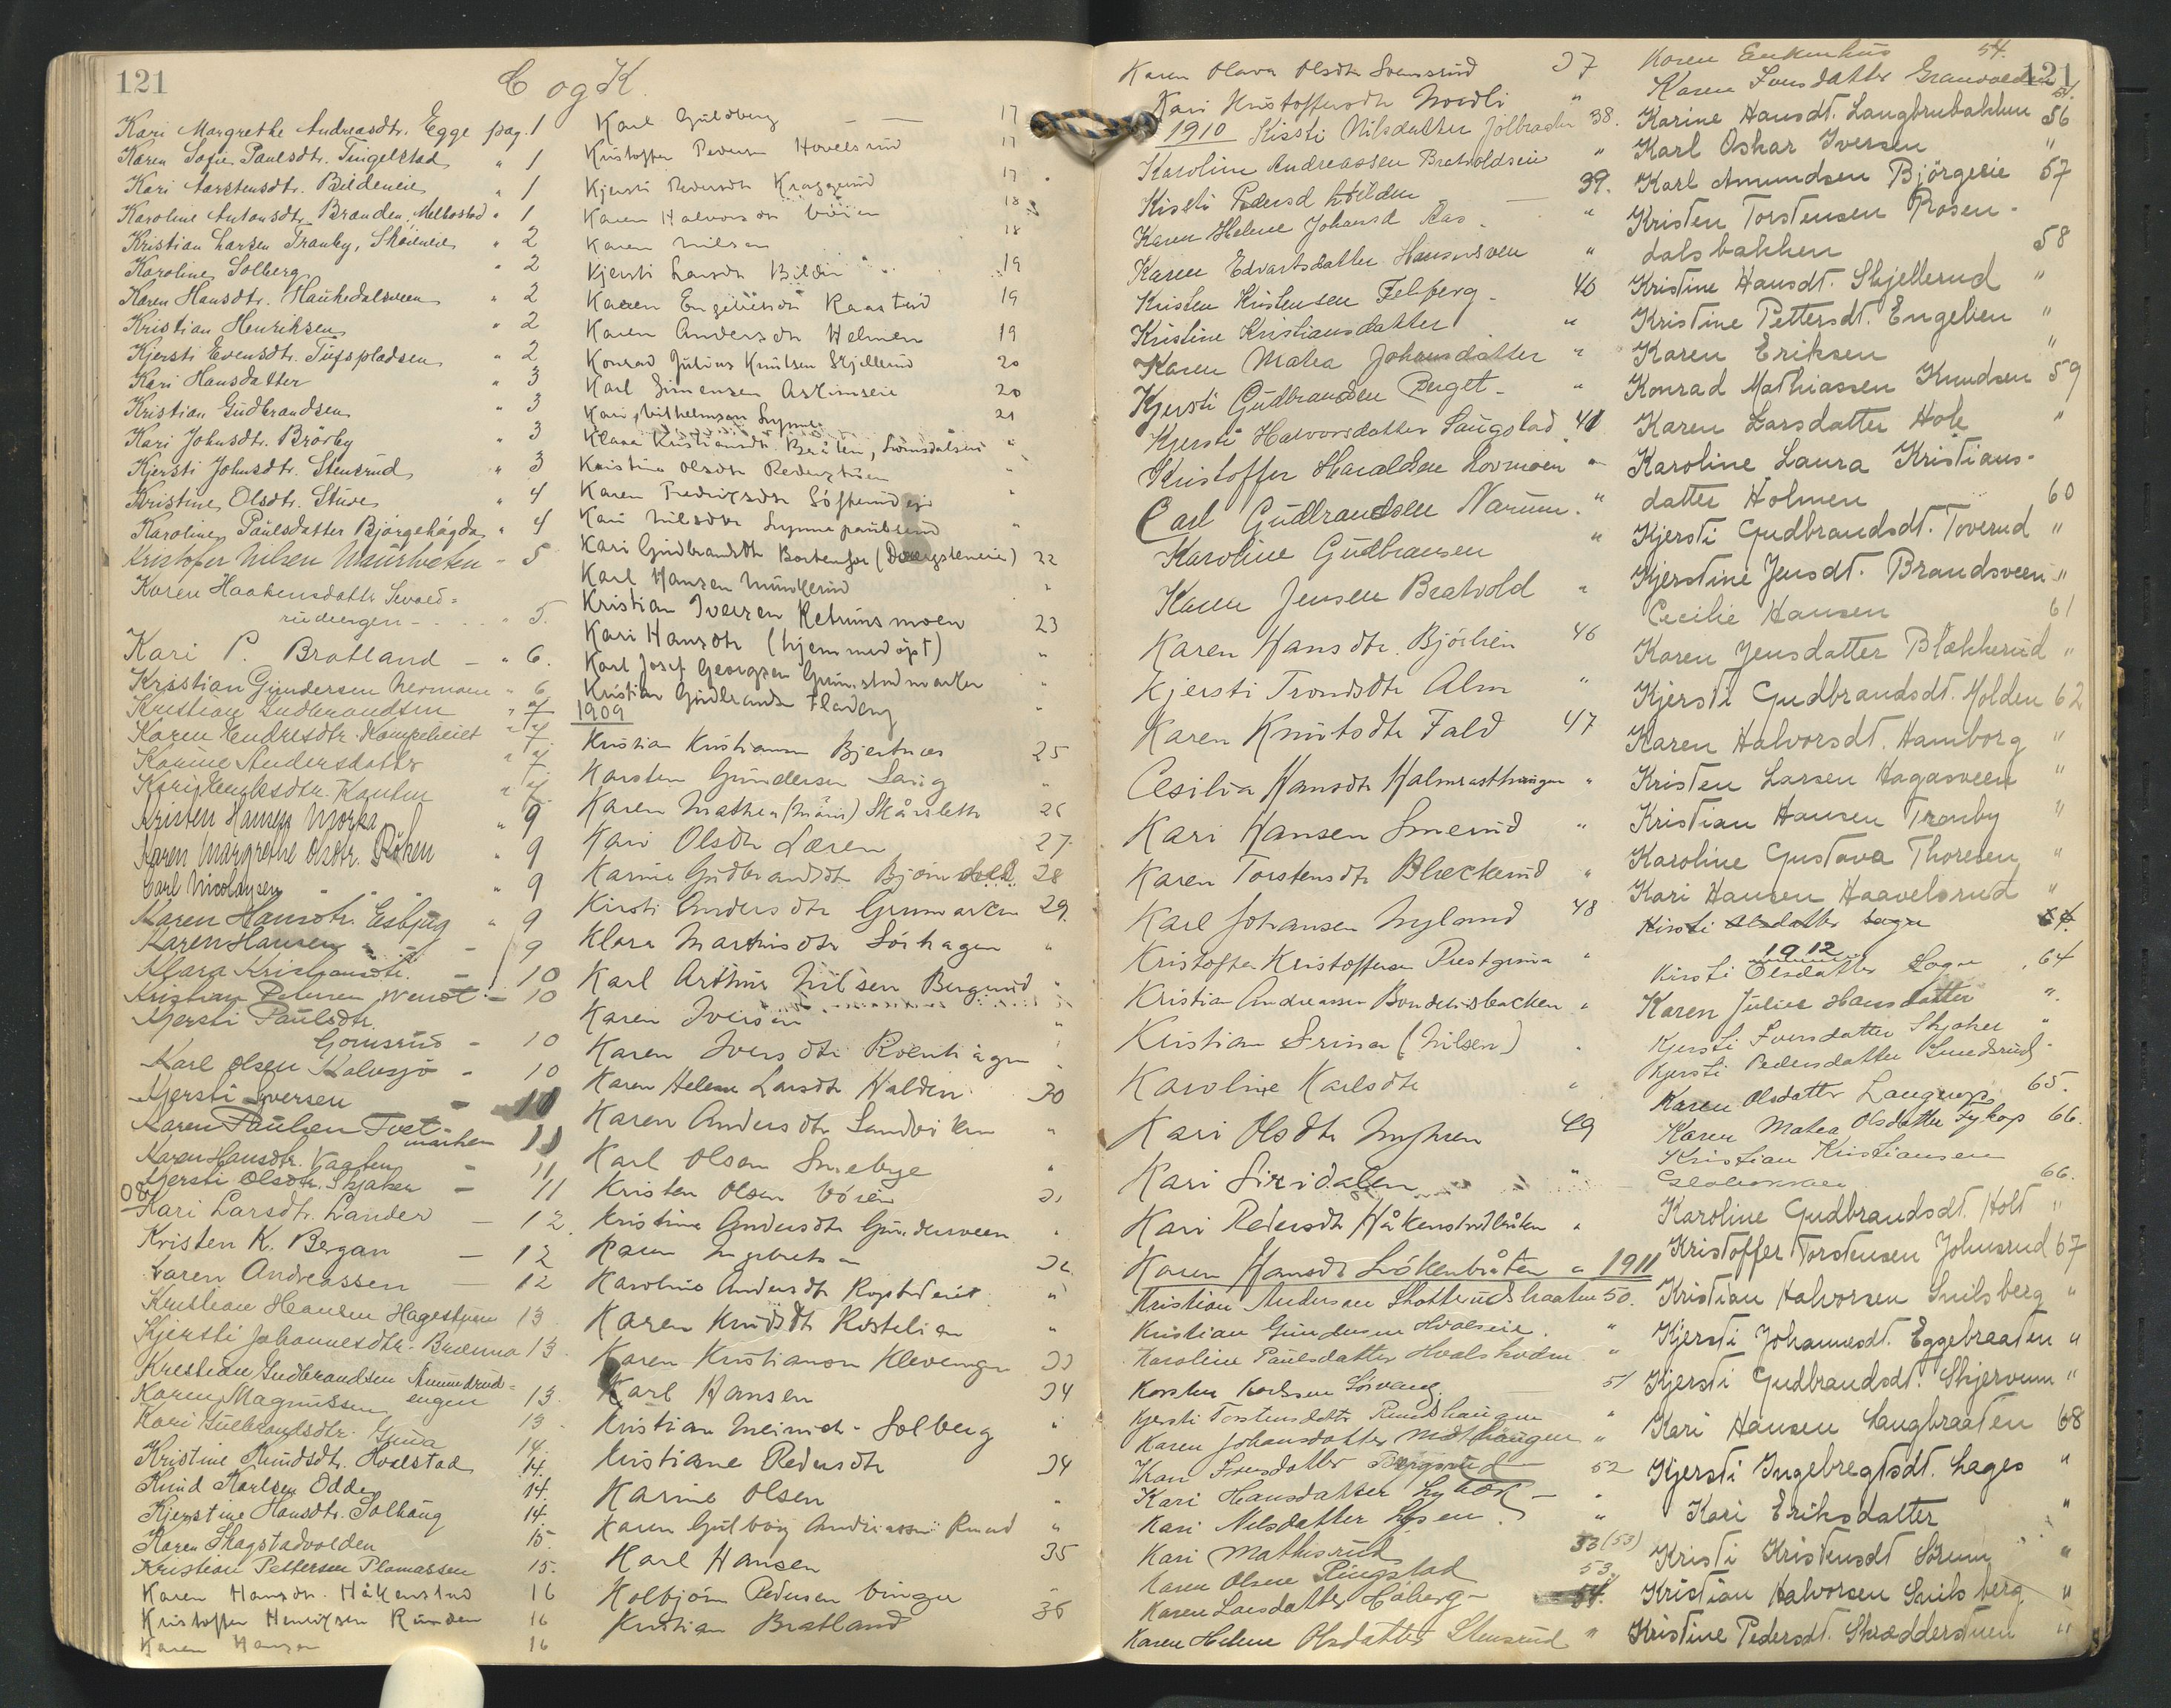 121
C og K.
Kari Margrethe Andreasdtr. Egge pag. 1
Karen Sofie Paulsdtr. Tingelstad " 1
Kari Torstensdtr. Bildeneie " 1
Karoline Antonsdtr. Branden, Melbostad " 1
Kristian Larsen Tranby, Skøieneie " 2
Karoline Solberg " 2
Karen Hansdtr. Haukedalsveen " 2
Kristian Henriksen " 2
Kjersti Evensdtr. Tufspladsen " 2
Kari Hansdatter " 3
Kristian Gudbrandsen " 3
Kari Johnsdtr. Brørby " 3
Kjersti Johnsdtr. Stensrud " 3
Kristine Olsdtr. Stuve " 4
Karoline Paulsdatter Bjørgehagda " 4
Kristofer Nilsen - 5
Karen Haakensdatter
rudengen - . . . " 5.
Kari P. Bratland - " 6.
Kristian Gundersen Nermoen " 6
Kristian Gudbrandsen " 7
Karen Endresdtr. " 7
Karine Andersdatter " 7
Kari Henriksdtr. " 7
Kristen Hansen Morka " 9
Karen Margrethe Olsdtr. Røken " 9
Carl Nicolaysen " " " 9
Karen Hansdtr. Esbjug " 9
Karen Hansen " " - 9
Klara Kristiansdtr. - 10
Kristian Petersen Wendt - 10
Kjersti Paulsdtr.
Gomsrud - 10
Karl Olsen Kalvsjø - 10
Kjersti Iversen - 10
Karen Paulsen Tvet-
marken 11
Karen Hansdtr. Vaaten - 11
Kjersti Olsdtr. Skjaker - 11
08 Kari Larsdtr. Lander - 12.
Kristen K. Bergan - 12
Karen Andreassen - 12
Kristian Hansen Hagestuen 13
Kjersti Johannesdtr. Bruerma 13
Kristian Gudbrandsen Amundrud=
engen 13
Karen Magnussen 13
Kari Gulbrandsdtr. Grina 14.
Kristine Knudsdtr. Hvalstad 14.
Knud Karlsen Odden 14.
Kjerstine Hansdtr. Solhaug 14.
Karen Skagstadvolden 15.
Kristian Pettersen Plomassen 15.
Karen Hansdtr. Håkenstad 16
Kristoffer Henriksen Runden 16
Karen Hansen 16
Karl Guldberg 17
Kristoffer Pedersen Hovelsrud 17
Kjersti Pedersdtr Kraggerud 17
Karen Halvorsdtr Vøien 18
Karen Nilsen 18
Kjersti Larsdtr Bilden 19
Karen Engebretsdtr Raastad 19
Karen Andersdtr Helmen 19
Konrad Julius Knutsen Skjellerud 20
Karl Simensen Askimseie 20
Kari Vilhelmsen Lynne 21
Klara Kristiansdtr Bråten, "
Kristine Olsdtr "
Karen Fredriksdtr "
Kari Nilsdtr "
Kari Gudbrandsdtr (Dvergsteneie) 22
Karl Hansen Munkerud "
Kristian Iversen Retrumsmoen 23
Kari Hansdtr (hjemmedøpt) "
Karl Josef Georgsen Grinistadmarken "
Kristian Gudbrandsen Fladeng "
1909
Kristian Kristiansen Bjertnes 25
Karsten Gundersen Saug "
Karen Mathea (Marie) Skårsletten 26
Kari Olsdtr Læren 27.
Karine Gudbrandsdtr 28
Kirsti Andersdtr Grinimarken 29.
Klara Marthisdtr Sørhagen "
Karl Arthur Nilsen Bergerud "
Karen Iversen "
Karen Iversdtr Roenhagen "
Karen Helene Larsdtr Halden 30
Karen Andersdtr Sandviken "
Karl Olsen Smebye "
Kristen Olsen Vøien 31
Kristine Andersdtr Gundersveen "
Karen Ingebretsen 32.
Karoline Andersdtr "
Karen Knudsdtr "
Karen Kristiansen Klevengen 33
Karl Hansen 34
Kristian Meinich-Solberg "
Kristiane Pedersdtr 34
Karine Olsen "
Karen Gulborg Andreassen Ruud "
Karl Hansen 35
Kolbjørn Pedersen Vinger "
Kristian Bratland 36
Karen Olava Olsdtr Svensrud 37
Kari Kristoffersdtr Nordli "
1910 Kisti Nilsdatter Jølbraaten 38.
Karoline Andreassen Bratvoldseie "
Kisti Pedersd Hvilden - 39.
Karen Helene Johansd Aas "
Karen Edvartsdatter Hansensveen "
Kristen Kristensen Felberg - 40
Kristine Kristiansdatter "
Karen Matea Johansdatter "
Kjersti Gudbrandsen Perget - "
Kjersti Halvorsdatter Saugstad 41
Kristoffer Haraldsen Hovmoen "
Carl Gudbrandsen Narum. "
Karoline Gudbransen "
Karen Jensen Bratvold "
Karen Hansdtr. Bjørlien 46
Kjersti Trondsdtr Alm "
Karen Knutsdtr Fald 47
Cesilia Hansdtr Halmrasthaugen "
Kari Hansen Smerud "
Karen Torstensdtr Bleckerud "
Karl Johansen Nyland 48
Kristoffer Kristoffersen Prestgina "
Kristian Andreassen Bondelisbacken "
Kristian Grina (Nilsen) "
Karoline Karlsdtr "
Kari Olsdtr Myhren 49
Kari Liridalen "
Kari Pedersdtr Håkenstadbråten "
Karen Hansdtr Løkenbråten " 1911
Kristian Andersen Skotterudsbraaten 50.
Kristian Gundersen Hvalseie. "
Karoline Paulsdatter Hvalskoden "
Karsten Karlsen Sørvang. - 51
Kjersti Torstensdatter Rundshaugen "
Karen Johansdatter Mælhaugen "
Kari Iversdatter Bergsrud 52
Kari Hansdatter Lybæk - "
Kari Nilsdatter Lysen. "
Kari Mathisrud 53 (53)
Karen Olsen Ringstad 53.
Karen Larsdatter Høberg - 54.
Karen Helene Olsdatter Stensrud "
Karen Enkenhus 54.
Karen Iversdatter Granvolden 121
Karine Hansdt. Langbrubakken 56
Karl Oskar Iversen "
Karl Amundsen Bjørgeeie 57
Kristen Torstensen Rosen-
dalsbakken 58
Kristine Hansdt. Skjellerud "
Kristine Pettersdt. Engelien "
Karen Eriksen "
Konrad Mathiassen Knudsen 59
Karen Larsdatter Hole "
Karoline Laura Kristians-
datter Holmen 60
Kjersti Gudbrandsdt. Toverud "
Kjerstine Jensdt. Brandsveen "
Cecilie Hansen 61
Karen Jensdatter Blækkerud "
Kjersti Gudbrandsdt. Molden 62
Karen Halvorsdt. Hamborg "
Kristen Larsen Hagasveen "
Kristian Hansen Tranby "
Karoline Gustava Thoresen "
Kari Hansen Haavelsrud "
Kirsti Olsdatter Sogn 64.
1912
Kirsti Olsdatter Sogn 64
Karen Julie Hansdatter "
Kjersti Iversdatter Skjaker "
Kjersti Pedersdatter Smedsrud -
Karen Olsdatter Langerop 65.
Karen Matea Olsdatter Fykop 66.
Kristian Kristiansen
66.
Karoline Gudbrandsdt. Holt "
Kristoffer Torstensen Johnsrud 67
Kristian Halvorsen Snilsberg "
Kjersti Johannesdt. Eggebraaten "
Kjersti Gudbrandsdt. Skjervum "
Kari Hansen Langbraaten 68
Kjersti Ingebregtsdt. Lages "
Kari Eriksdatter "
Kristi Kristensdt Sørum "
Kristian Halvorsen Snilsberg "
Kristine Pedersdt. Skrædderstuen "